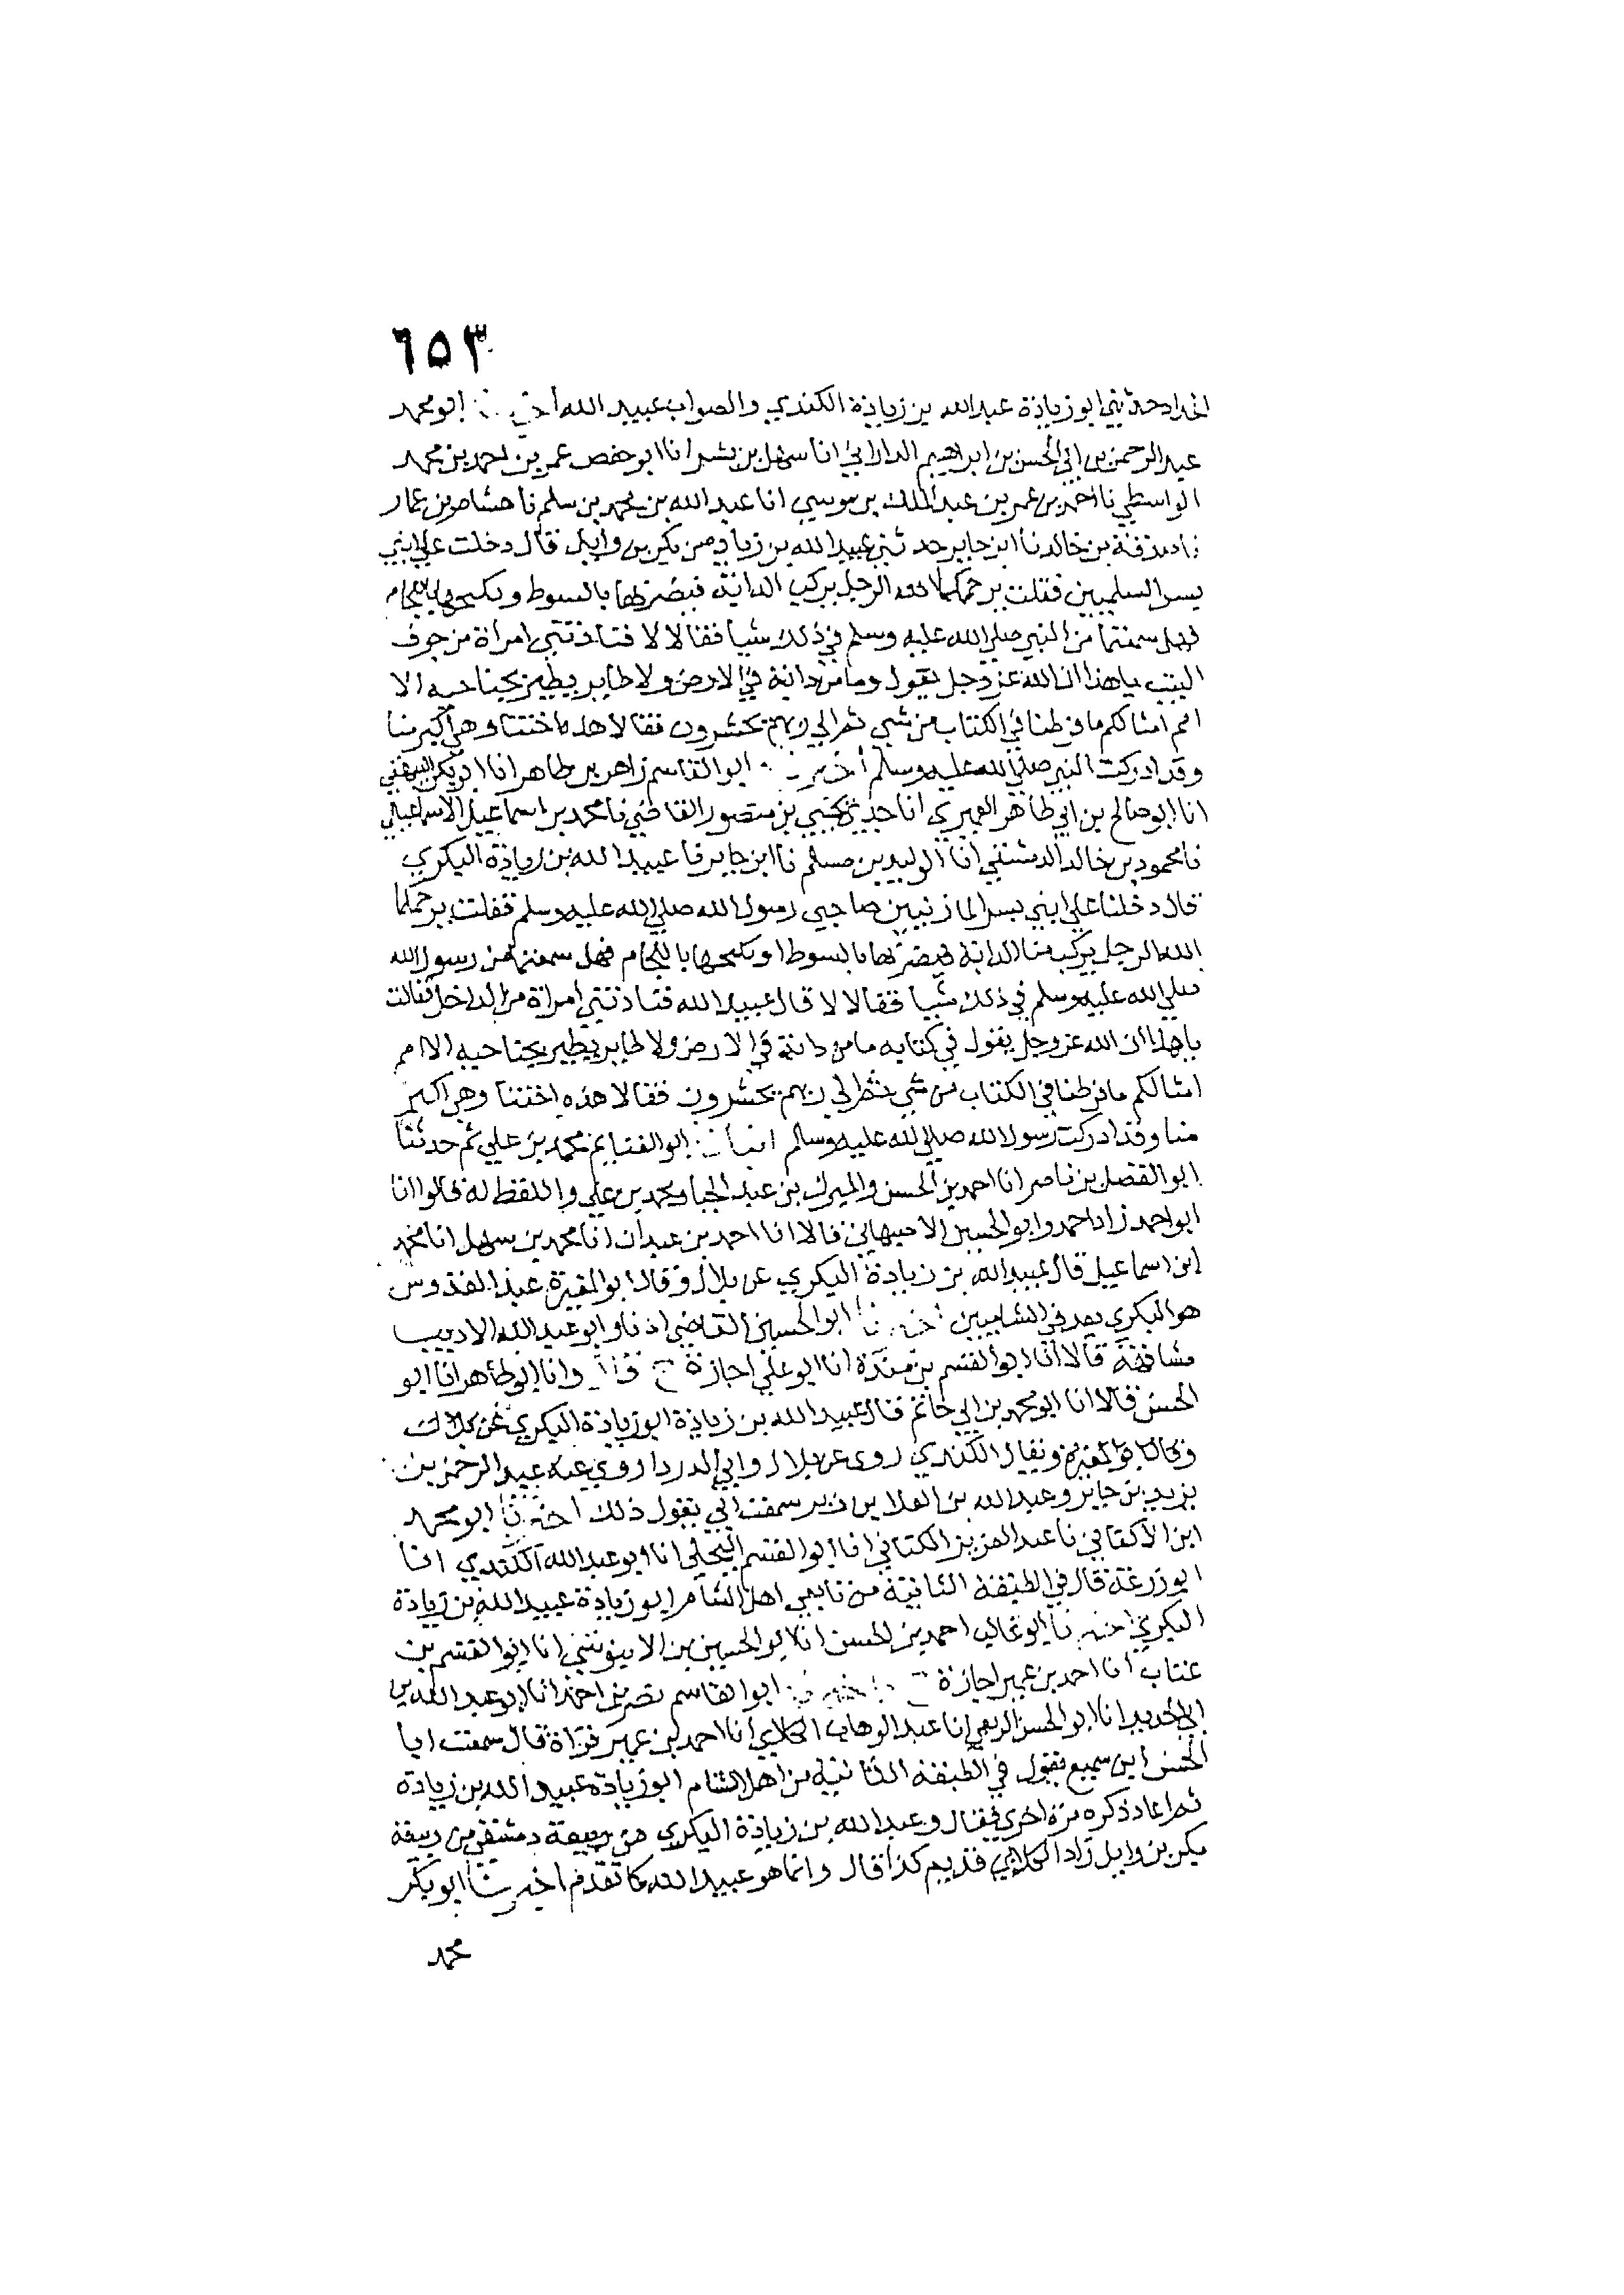 ٦٥٣
حدثني ابو زيادة عبد الله بن زيادة الكندي والصواب عبيد الله اخبرنا ابو محمد
عبد الرحمن بن ابي الحسن بن ابراهيم الداراني انا سهل بن بشر انا ابو حفص عمر بن احمد بن محمد
الواسطي نا احمد بن عمر بن عبد الملك بن موسي انا عبد الله بن محمد بن سلم نا هشام بن عمار
نا صدقة بن خالد نا ابن جابر حدثني عبيد الله بن زياد من بكر بن وايل قال دخلت علي ابني
بسر السلميين فقلت يرحمكما الله الرجل يركب الدابة فيضربها بالسوط ويكبحها باللجام
فهل سمعتما من النبي صلي الله عليه وسلم في ذلك شيا فقالا لا فنادتني امراة من جوف
البيت ياهذا ان الله عز وجل يقول وما من دابة في الارض ولا طاير يطير بجناحيه الا
امم امثالكم ما فرطنا في الكتاب من شي ثم الي ربهم يحشرون فقالا هذه اختنا وهي اكبر منا
وقد ادركت النبي صلي الله عليه وسلم اخبرنا ابو القاسم زاهر بن طاهر انا ابو بكر البيهقي
انا ابو صالح بن ابي طاهر العبري انا جدي يحيي بن منصور القاضي نا محمد بن اسماعيل الاسماعيلي
نا محمود بن خالد الدمشقي نا الوليد بن مسلم نا ابن جابر نا عبيد الله بن زيادة البكري
قال دخلنا علي ابني بسر المازنيين صاحبي رسول الله صلي الله عليه وسلم فقلت يرحمكما
الله الرجل يركب منا الدابة فيضربها بالسوط او يكبحها باللجام فهل سمعتما من رسول الله
صلي الله عليه وسلم في ذلك شيا فقالا لا قال عبيد الله فنادتني امراة من الداخل فقالت
ياهذا ان الله عز وجل يقول في كتابه ما من دابة في الارض ولا طاير يطير بجناحيه الا امم
امثالكم ما فرطنا في الكتاب من شي ثم الي ربهم يحشرون فقالا هذه اختنا وهي اكبر
منا وقد ادركت رسول الله صلي الله عليه وسلم انبانا ابو الغنايم محمد بن علي ثم حدثنا
ابو الفضل بن ناصر انا احمد بن الحسن والمبرك بن عبد الجبا ومحمد بن علي واللفظ له قالوا انا
ابو احمد زاد احمد وابو الحسين الاصبهاني قالا انا احمد بن عبدان انا محمد بن سهل انا محمد
ابن اسماعيل قال عبيد الله بن زيادة البكري عن بلال وقال ابو المغيرة عبد القدوس
هو البكري يعد في الشاميين اخبرنا ابو الحسين القاضي اذنا وابو عبد الله الاديب
مشافهة قالا انا ابو القسم بن مندة انا ابو علي اجازة ح قال وانا ابو طاهر انا ابو
الحسن قالا انا ابو محمد بن ابي حاتم قال عبيد الله بن زيادة ابو زيادة البكري عن بلال
ويقال الكندي روى عن بلال وابي الدردا روي عنه عبد الرحمن بن
يزيد بن جابر وعبد الله بن العلا بن زبر سمعت ابي يقول ذلك اخبرنا ابو محمد
ابن الاكفاني نا عبد العزيز الكتاني انا ابو القسم البجلي انا ابو عبد الله الكندي انا
ابو زرعة قال في الطبقة الثانية من تابعي اهل الشام ابو زيادة عبيد الله بن زيادة
البكري اخبرنا ابو غالب احمد بن الحسن انا ابو الحسين بن الابنوسي انا ابو القسم بن
عتاب انا احمد بن عمير اجازة ح واخبرنا ابو القاسم نصر بن احمد انا ابو عبد الله بن
ابي الحديد انا ابو الحسن الربعي انا عبد الوهاب الكلابي انا احمد بن عمير قراة قال سمعت ابا
الحسن ابن سميع يقول في الطبقة الثانية من اهل الشام ابو زيادة عبيد الله بن زيادة
ثم اعاد ذكره مرة اخري فقال وعبد الله بن زيادة البكري من ربيعة دمشقي من ربيعة
بكر بن وايل زاد الكلابي قديم كذا قال وانما هو عبيد الله كما تقدم اخبرنا ابو بكر
محمد